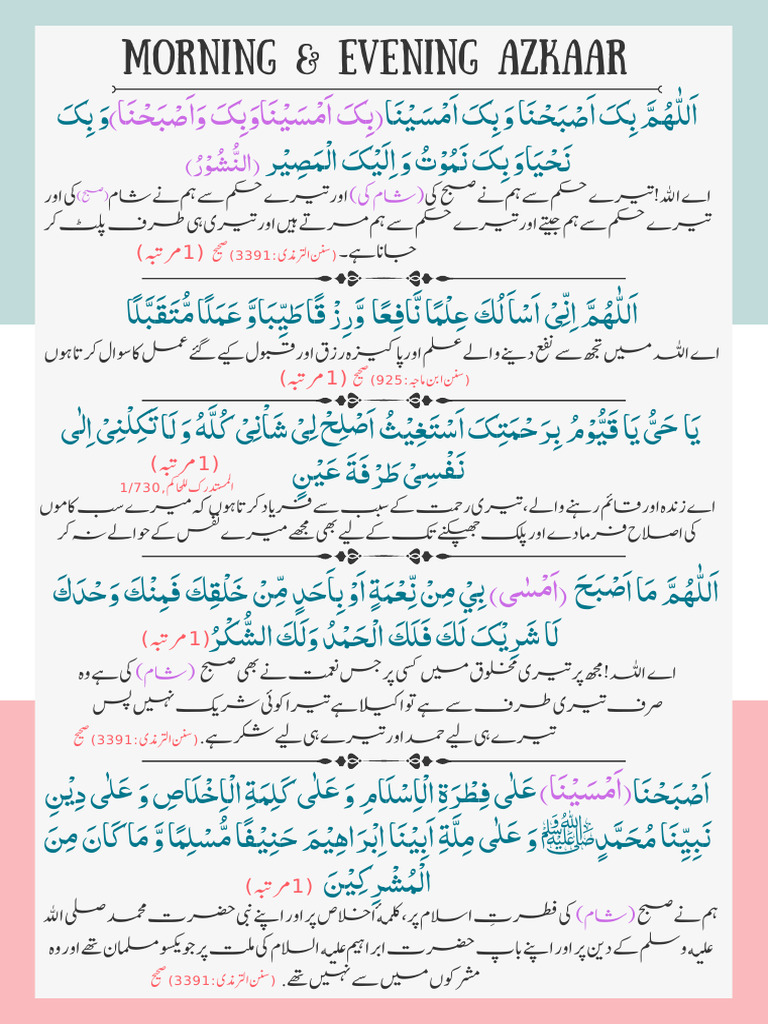 MORNING & EVENING AZKAAR
اَللّٰهُمَّ بِکَ اَصْبَحْنَا وَ بِکَ اَمْسَیْنَا(بِکَ اَمْسَیْنَاوَبِکَ وَاَصْبَحْنَا)وَ بِکَ
نَحْیَاوَ بِکَ نَمُوْتُ وَ اِلَیْکَ الْمَصِیْر (النُّشُوْرُ)
اے اللہ!تیرے حکم سے ہم نے صبح کی(شام کی) اور تیرے حکم سے ہم نے شام(صبح)کی اور
تیرے حکم سے ہم جیتے اور تیرے حکم سے ہم مرتے ہیں اور تیری ہی طرف پلٹ کر
جانا ہے۔ (سنن الترمذی:3391)صحیح (1 مرتبہ)
اَللّٰهُمَّ اِنِّیْ اَسْاَلُكَ عِلْمًا نَّافِعًا وَّرِزْ قًا طَیِّبًاوَّ عَمَلًا مُّتَقَبَّلًا
اے اللہ میں تجھ سے نفع دینے والے علم اور پاکیزہ رزق اور قبول کیے گئے عمل کا سوال کرتا ہوں
(سنن ابن ماجہ:925)صحیح (1 مرتبہ)
یَا حَیُّ یَا قَیُّوْمُ بِرَحْمَتِکَ اَسْتَغِیْثُ اَصْلِحْ لِیْ شَاْنِیْ کُلَّهُ وَ لَا تَکِلْنِیْ اِلٰی
نَفْسِیْ طَرْفَةَ عَیْنٍ (1 مرتبہ)
المستدرک للحاکم,1/730
اے زندہ اور قائم رہنے والے، تیری رحمت کے سبب سے فریاد کرتا ہوں کہ میرے سب کاموں
کی اصلاح فرمادے اور پلک جھپکنے تک کے لیے بھی مجھے میرے نفس کے حوالے نہ کر
اَللّٰهُمَّ مَا اَصْبَحَ (اَمْسٰی) بِيْ مِنْ نِّعْمَةٍ اَوْ بِاَحَدٍ مِّنْ خَلْقِكَ فَمِنْكَ وَحْدَكَ
لَا شَرِیْکَ لَكَ فَلَكَ الْحَمْدُ وَلَكَ الشُّکْرُ(1 مرتبہ)
اے اللہ!مجھ پر تیری مخلوق میں کسی پر جس نعمت نے بھی صبح (شام) کی ہے وہ
صرف تیری طرف سے ہے تو اکیلا ہے تیرا کوئی شریک نہیں پس
تیرے ہی لیے حمد اور تیرے ہی لیے شکر ہے۔(سنن الترمذی:3391)صحیح
اَصْبَحْنَا(اَمْسَیْنَا) عَلٰی فِطْرَةِ الْاِسْلَامِ وَ عَلٰی كَلِمَةِ الْاِخْلَاصِ وَ عَلٰی دِیْنِ
نَبِیِّنَا مُحَمَّدٍ ﷺ وَ عَلٰی مِلَّةِ اَبِیْنَا اِبْرَاهِیْمَ حَنِیْفًا مُّسْلِمًا وَّ مَا كَانَ مِنَ
الْمُشْرِكِیْنَ (1 مرتبہ)
ہم نے صبح (شام) کی فطرتِ اسلام پر، کلمہ اخلاص پر اور اپنے نبی حضرت محمد صلی اللہ
علیہ وسلم کے دین پر اور اپنے باپ حضرت ابراہیم علیہ السلام کی ملت پر جو یکسو مسلمان تھے اور وہ
مشرکوں میں سے نہیں تھے۔ (سنن الترمذی:3391)صحیح